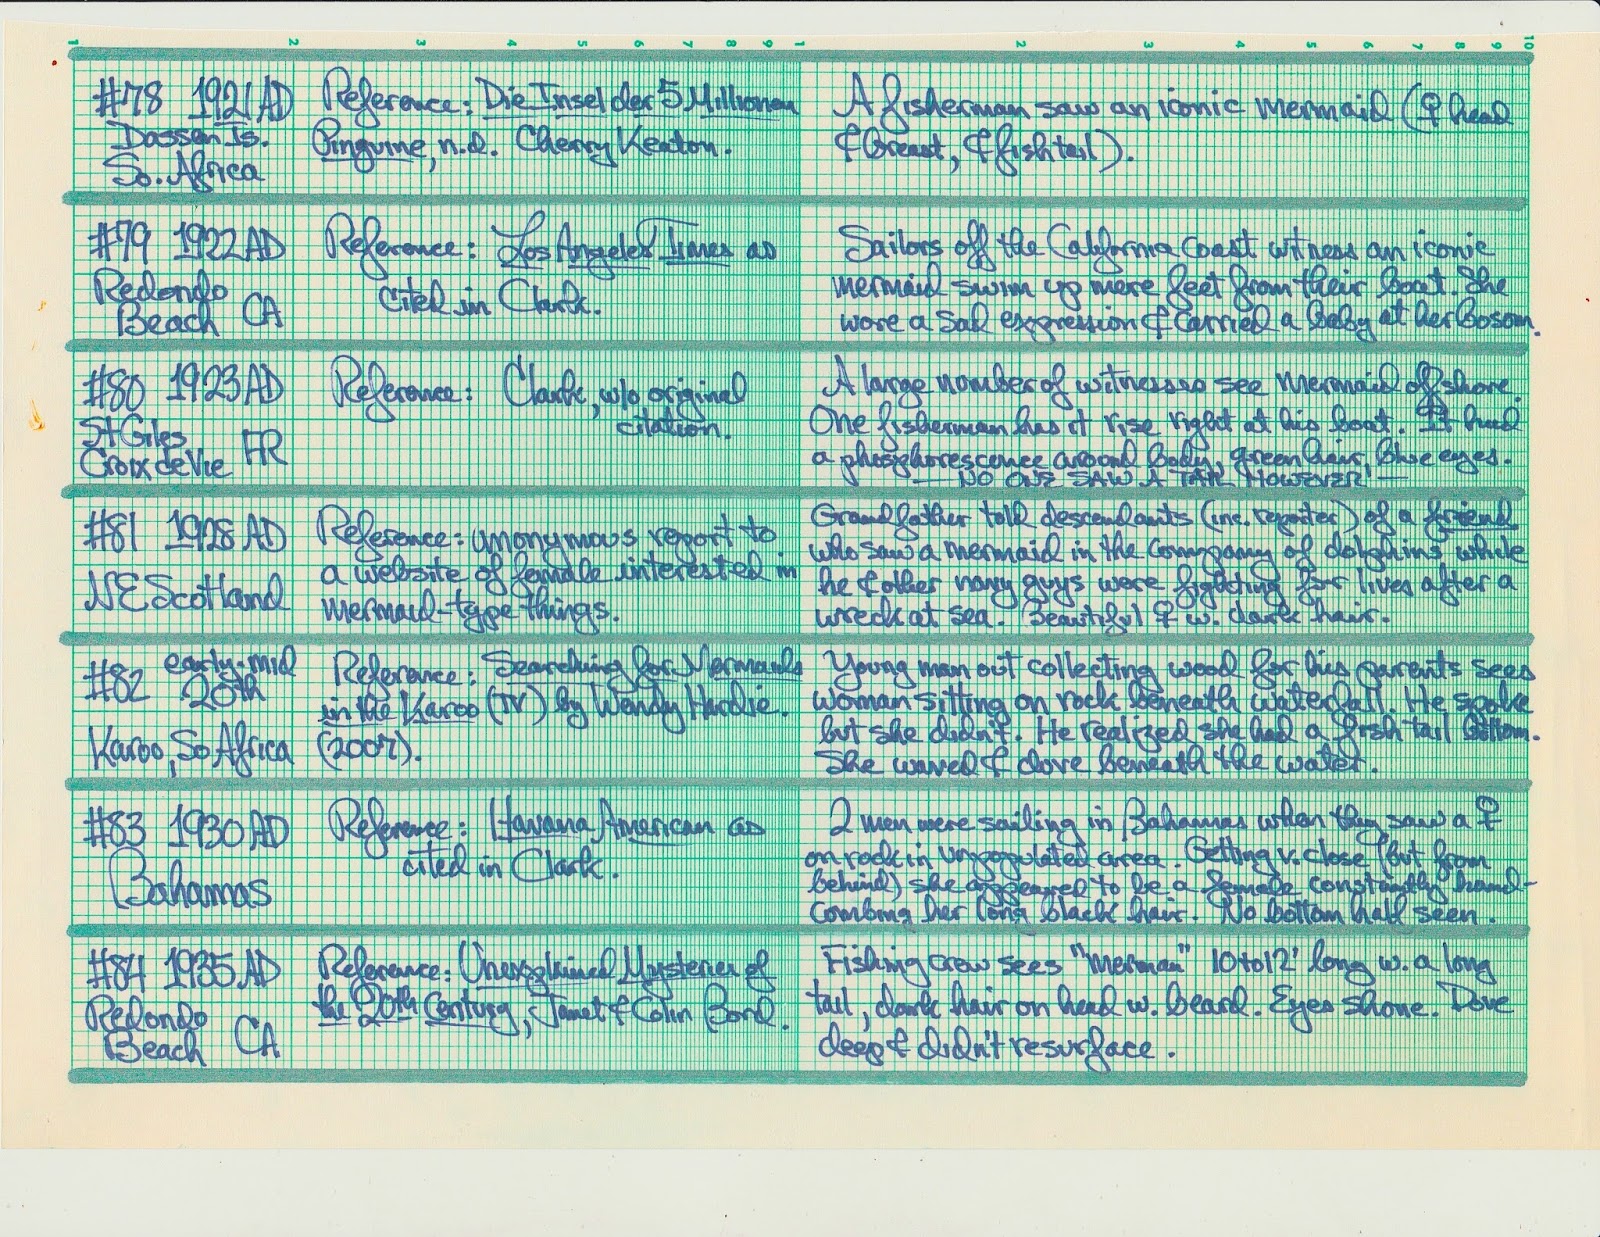 1 2 3 4 5 6 7 8 9 1 2 3 4 5 6 7 8 9 10
#78 1921 AD
Dassen Is.
So. Africa
Reference: Die Insel der 5 Millionen
Pinguine, n.d. Cherry Keaton.
A fisherman saw an iconic mermaid (♀ head
& breast, & fishtail).
#79 1922 AD
Redondo
Beach CA
Reference: Los Angeles Times as
cited in Clark.
Sailors off the California Coast witness an iconic
mermaid swim up mere feet from their boat. She
wore a sad expression & carried a baby at her bosom.
#80 1923 AD
St Giles
Croix de Vie FR
Reference: Clark, w/o original
citation.
A large number of witnesses see mermaid offshore.
One fisherman has it rise right at his boat. It had
a phosphorescence around body, green hair, blue eyes.
— NO ONE SAW A TAIL HOWEVER —
#81 1928 AD
NE Scotland
Reference: unonymous report to
a website of female interested in
mermaid-type things.
Grandfather told descendants (inc. reporter) of a friend
who saw a mermaid in the company of dolphins while
he & other navy guys were fighting for lives after a
wreck at sea. Beautiful ♀ w. dark hair.
#82 early-mid
20th
Karoo, So Africa
Reference: Searching for Mermaids
in the Karoo (TV) by Wendy Hardie.
(2007).
Young man out collecting wood for his parents sees
woman sitting on rock beneath waterfall. He spoke
but she didn't. He realized she had a fish tail bottom.
She waved & dove beneath the water.
#83 1930 AD
Bahamas
Reference: Havana American as
cited in Clark.
2 men were sailing in Bahamas when they saw a ♀
on rock in unpopulated area. Getting v. close (but from
behind) she appeared to be a female constantly hand-
combing her long black hair. No bottom half seen.
#84 1935 AD
Redondo
Beach CA
Reference: Unexplained Mysteries of
the 20th Century, Janet & Colin Bord.
Fishing crew sees "merman" 10 to 12' long w. a long
tail, dark hair on head w. beard. Eyes shone. Dove
deep & didn't resurface.